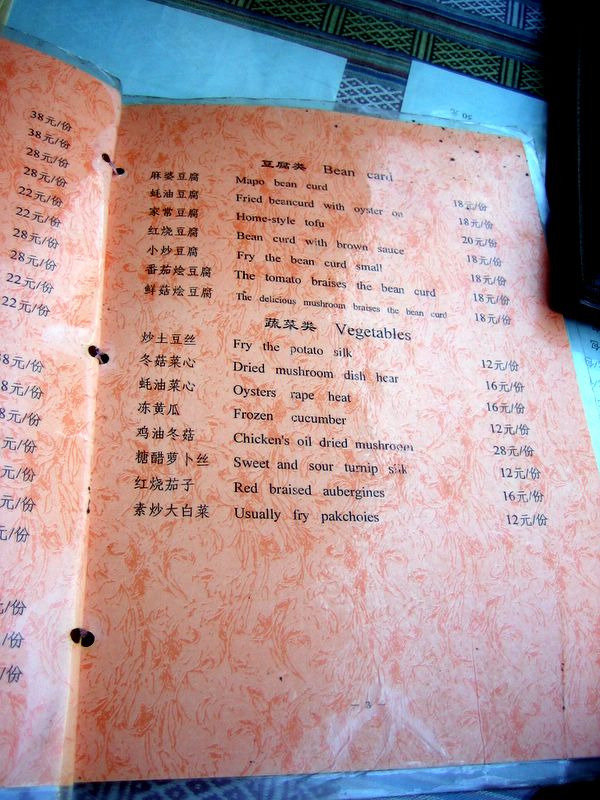 38元/份
38元/份
28元/份
28元/份
22元/份
22元/份
28元/份
28元/份
22元/份
22元/份
8元/份
8元/份
8元/份
元/份
元/份
元/份
元/份
元/份
/份
/份
豆腐类 Bean card
麻婆豆腐 Mapo bean curd 18元/份
蚝油豆腐 Fried beancurd with oyster on 18元/份
家常豆腐 Home-style tofu 20元/份
红烧豆腐 Bean curd with brown sauce 18元/份
小炒豆腐 Fry the bean curd small 18元/份
番茄烩豆腐 The tomato braises the bean curd 18元/份
鲜菇烩豆腐 The delicious mushroom braises the bean curd 18元/份
蔬菜类 Vegetables
炒土豆丝 Fry the potato silk 12元/份
冬菇菜心 Dried mushroom dish hear 16元/份
蚝油菜心 Oysters rape heat 16元/份
冻黄瓜 Frozen cucumber 12元/份
鸡油冬菇 Chicken's oil dried mushroom 28元/份
糖醋萝卜丝 Sweet and sour turnip silk 12元/份
红烧茄子 Red braised aubergines 16元/份
素炒大白菜 Usually fry pakchoies 12元/份
- 3 -